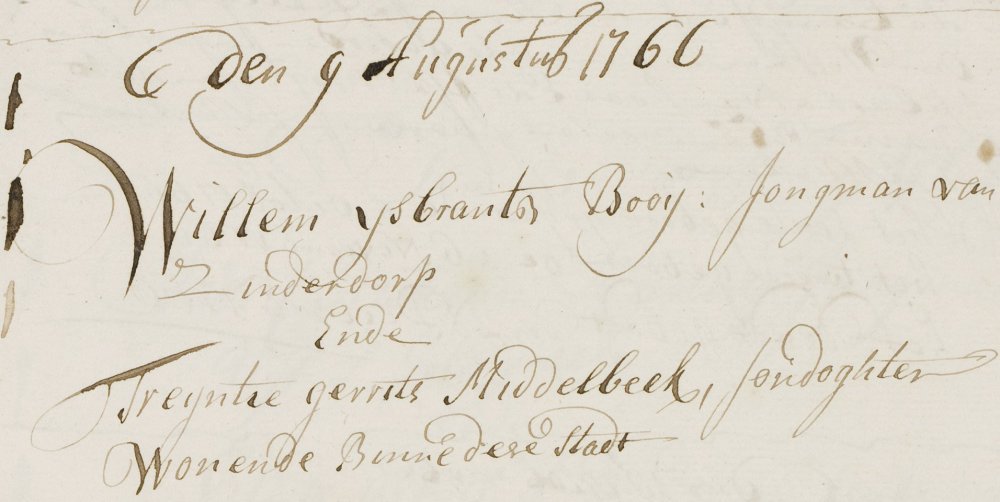 den 9 Augústus 1766
Willem ysbrants Booÿ: Jongman van
Zunderdorp
Ende
Treÿntie gerrits Middelbeek, Jondoghter
Wonende Binne dese Stadt